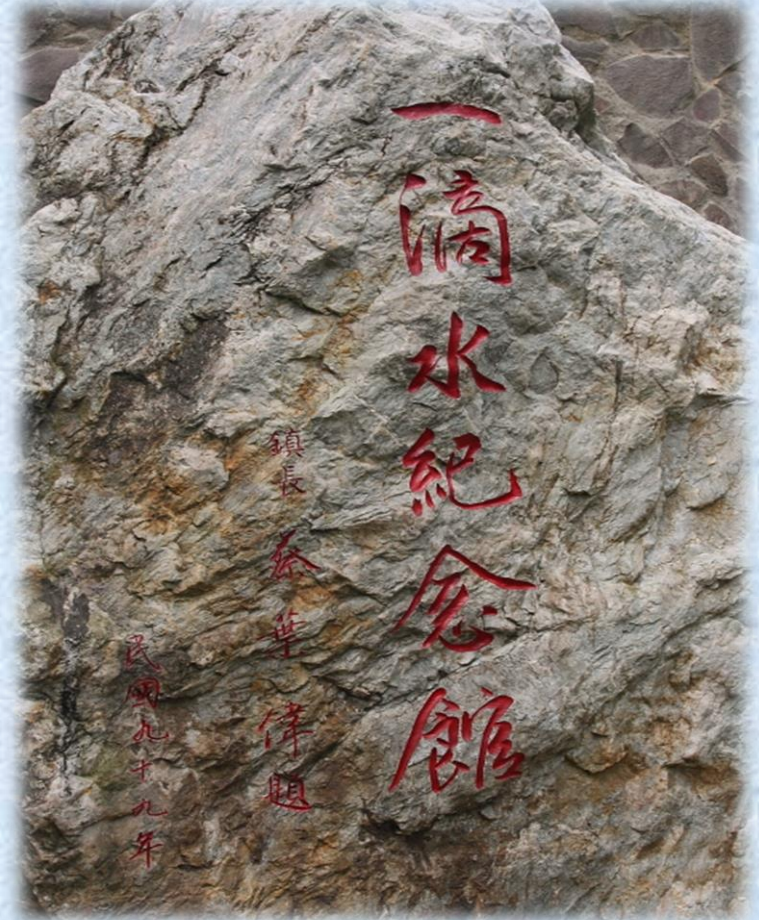 一滴水紀念館
鎮長 蔡葉偉題
民國九十九年